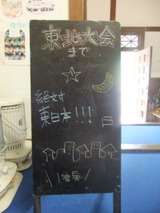 東北大会
まで
絶対
東日本!!!